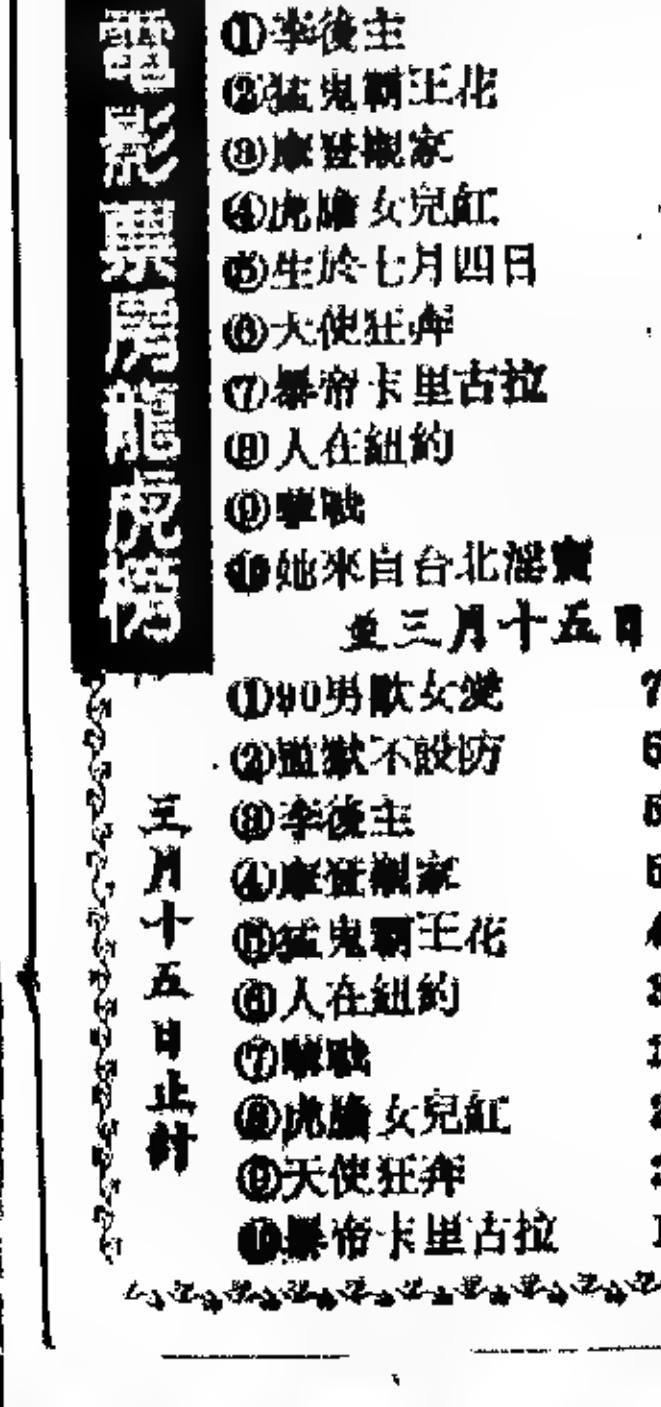 電影票房龍虎榜
①李後主
②猛鬼霸王花
③摩登襯家
④虎膽女兒紅
⑤生於七月四日
⑥天使狂奔
⑦暴帝卡里古拉
⑧人在紐約
⑨驢戰
⑩她來自台北淫竇
三月十五日
①90男歡女愛
②監獄不設防
③李後主
④摩登襯家
⑤猛鬼霸王花
⑥人在紐約
⑦
⑧虎膽女兒紅
⑨天使狂奔
⑩暴帝卡里古拉
三月十五日止計